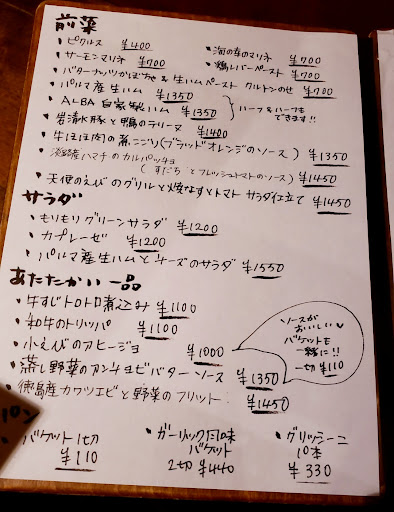 前菜
・ピクルス ¥400
・海の幸のマリネ ¥700
・サーモンマリネ ¥700
・鶏レバーペースト ¥700
・バターナッツかぼちゃ&生ハムペースト クルトンのせ ¥700
・パルマ産生ハム ¥1350
・ALBA自家製ハム ¥1350
ハーフ&ハーフも
できます!!
・岩清水豚と鴨のテリーヌ ¥1400
・牛ほほ肉の煮こごり(ブラッドオレンジのソース) ¥1350
・淡路産ハマチのカルパッチョ
(すだちとフレッシュトマトのソース) ¥1450
・天使のえびのグリルと焼なすとトマト サラダ仕立て ¥1450
サラダ
・もりもりグリーンサラダ ¥1200
・カプレーゼ ¥1200
・パルマ産生ハムとチーズのサラダ ¥1550
あたたかい一品
・牛すじトロトロ煮込み ¥1100
・和牛のトリッパ ¥1100
・小えびのアヒージョ ¥1000
ソースが
おいしい
バケットも
一緒に!!
一切 ¥110
・蒸し野菜のアンチョビバターソース ¥1350
・徳島産カワツエビと野菜のフリット: ¥1450
パン
・バケット1切
¥110
・ガーリック風味
バケット
2切 ¥440
・グリッシーニ
10本
¥330